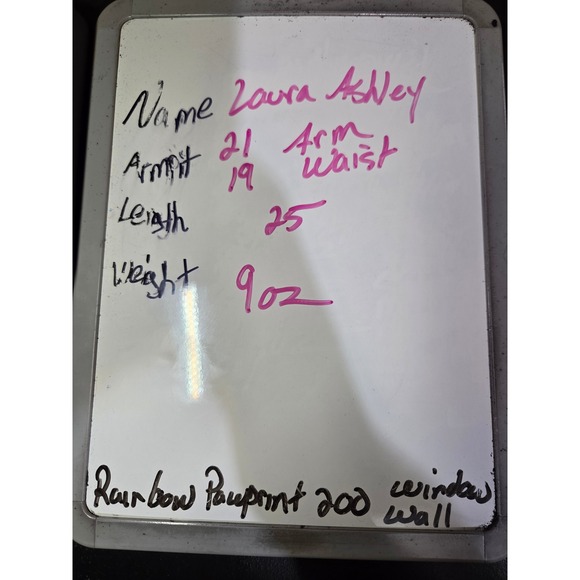 Name Laura Ashley
Armpit 21 Arm
19 Waist
Length 25
Weight 9oz
Rainbow Pawprint 200 window
wall